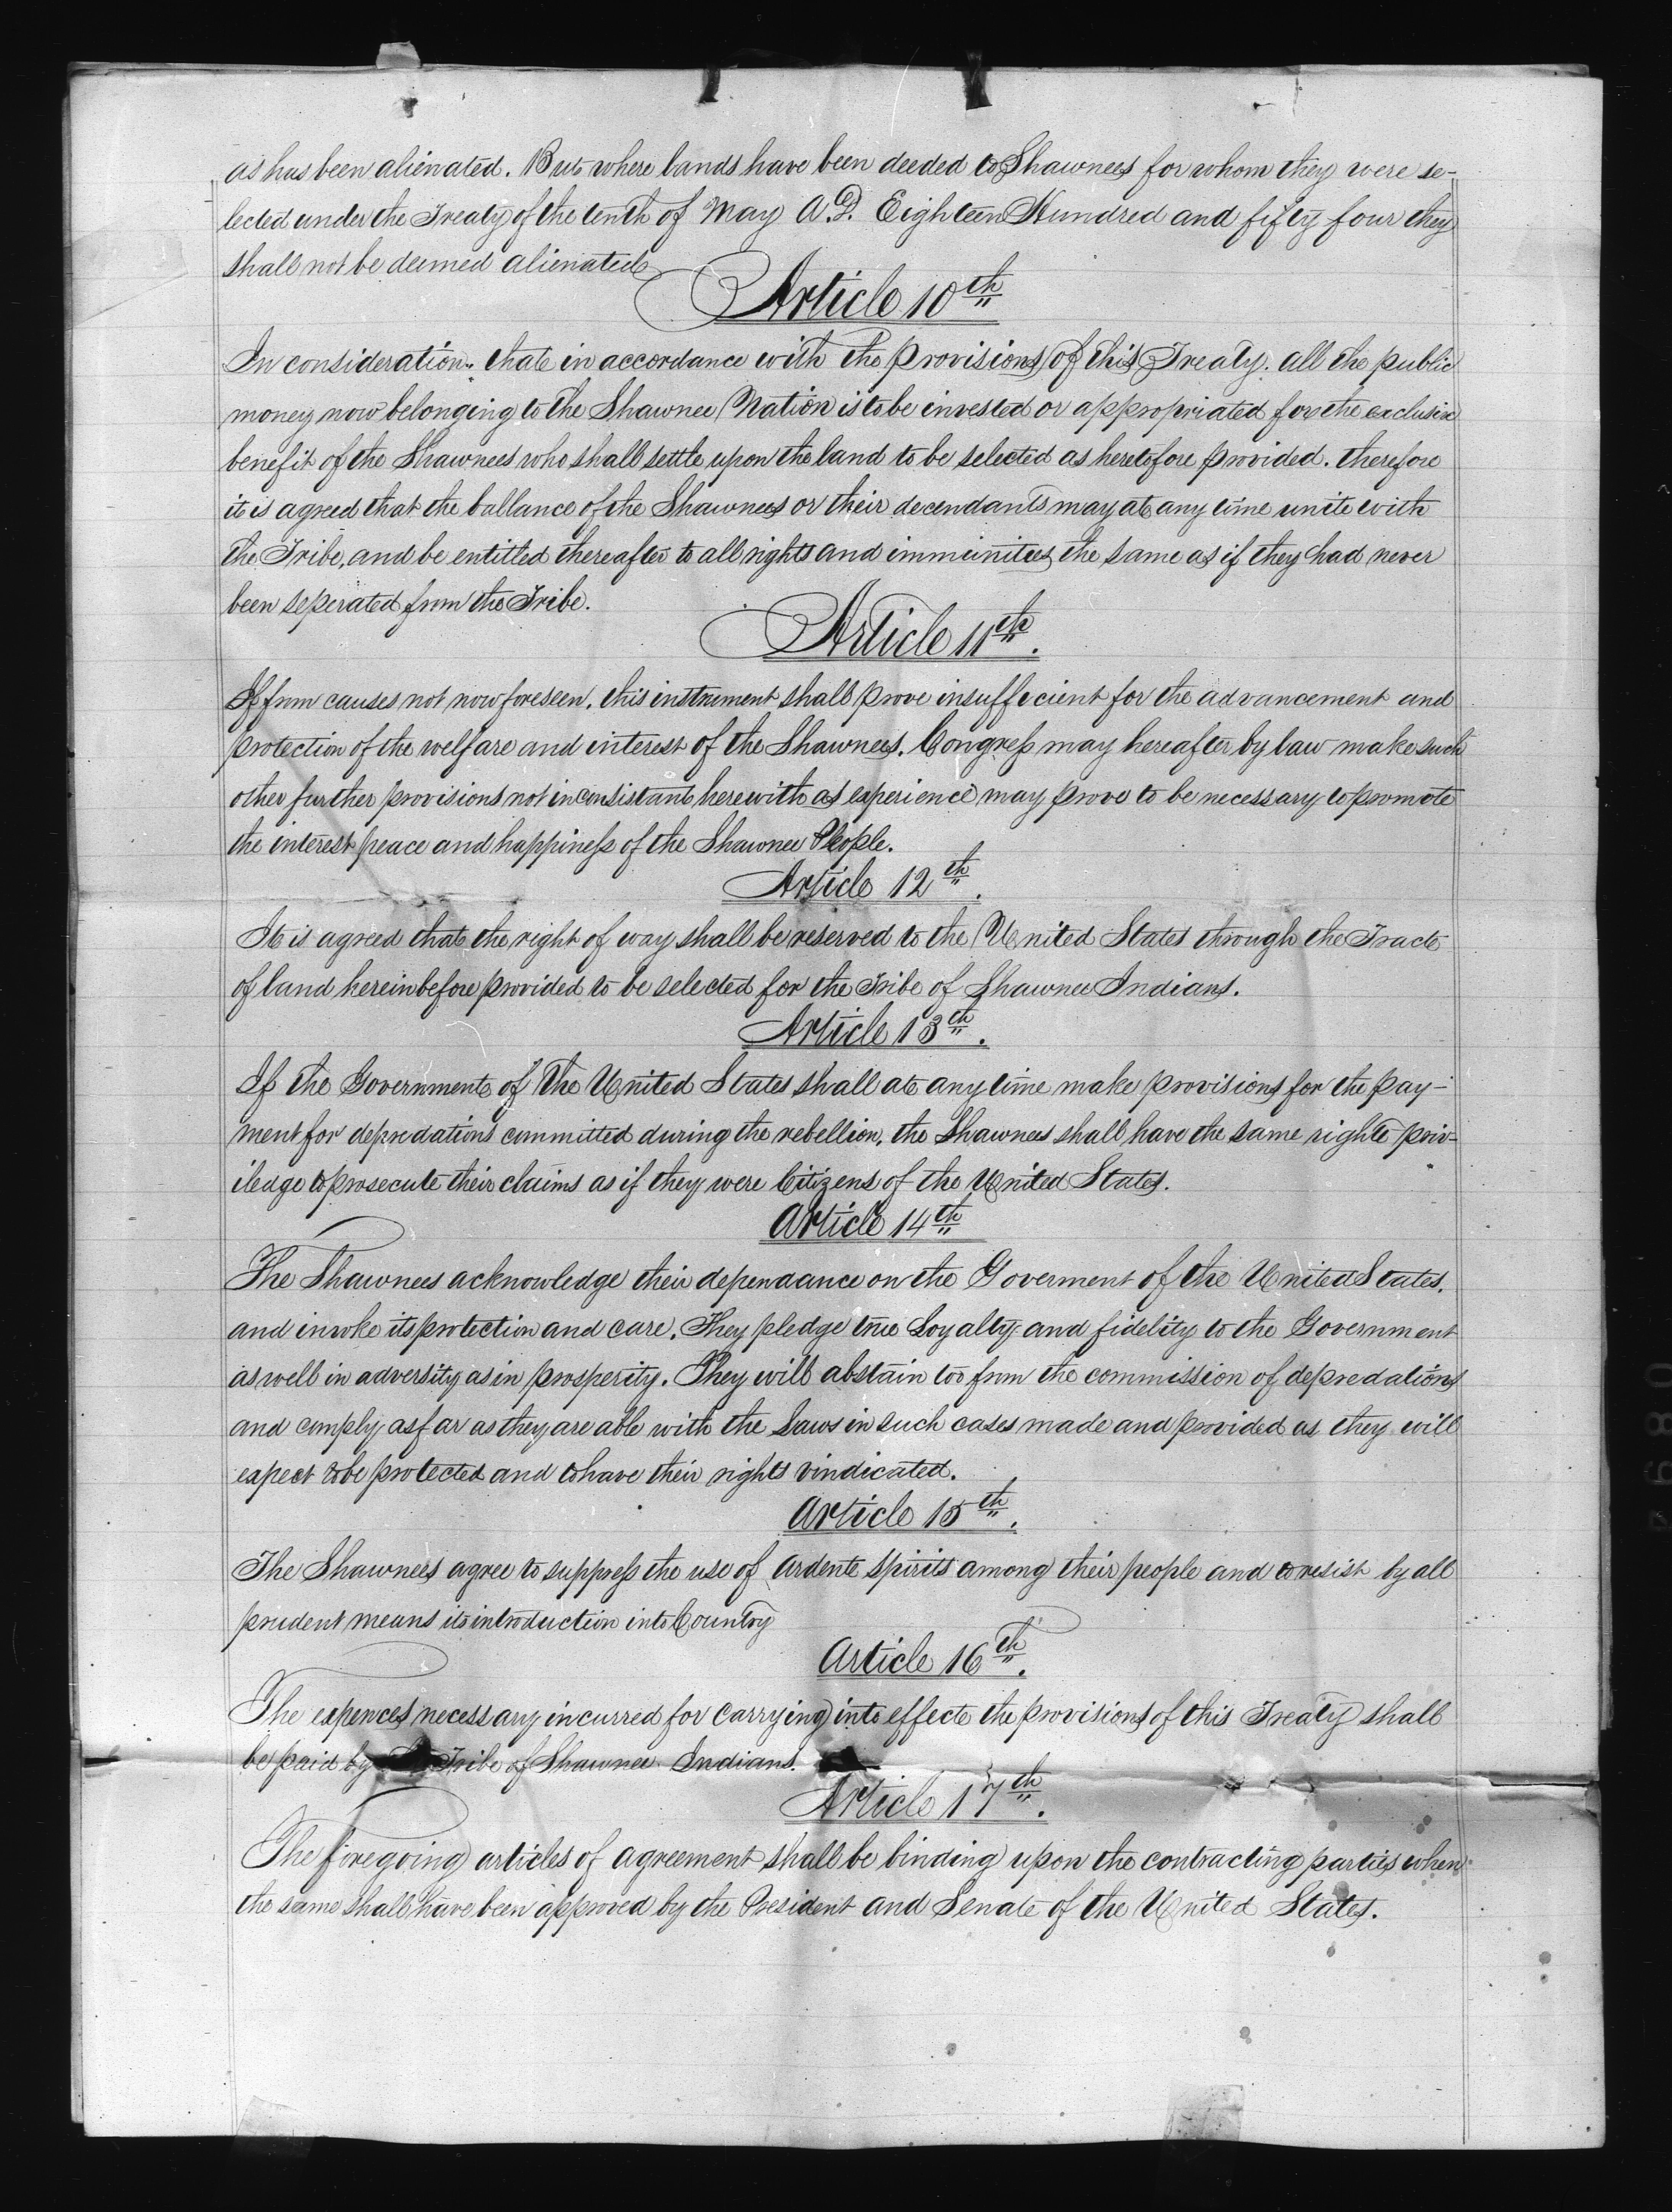 as has been alienated. But where lands have been deeded to Shawnees for whom they were se-
lected under the Treaty of the tenth of May A.D. Eighteen Hundred and fifty four they
shall not be deemed alienated
Article 10th
In consideration that in accordance with the provisions of this Treaty. all the public
money now belonging to the Shawnee Nation is to be invested or appropriated for the exclusive
benefit of the Shawnees who shall settle upon the land to be selected as heretofore provided. therefore
it is agreed that the ballance of the Shawnees or their decendants may at any time unite with
the Tribe, and be entitled thereafter to all rights and immunities the same as if they had never
been seperated from the Tribe.
Article 11th.
If from causes not now foreseen, this instrument shall prove insufficient for the advancement and
protection of the welfare and interest of the Shawnees. Congress may hereafter by law make such
other further provisions not inconsistant herewith as experience may prove to be necessary to promote
the interest peace and happiness of the Shawnee People.
Article 12th.
It is agreed that the right of way shall be reserved to the United States through the Tract
of land hereinbefore provided to be selected for the Tribe of Shawnee Indians.
Article 13th.
If the Government of the United States shall at any time make provisions for the pay-
ment for depredations committed during the rebellion, the Shawnees shall have the same right & priv-
iledge to prosecute their claims as if they were Citizens of the United States.
Article 14th
The Shawnees acknowledge their dependance on the Goverment of the United States.
and invoke its protection and care. They pledge true Loyalty and fidelity to the Government
as well in adversity as in prosperity. They will abstain too from the commission of depredations
and comply as far as they are able with the Laws in such cases made and provided as they will
expect to be protected and to have their rights vindicated.
Article 15th.
The Shawnees agree to suppress the use of Ardent spirits among their people and to resist by all
prudent means its introduction into Country
Article 16th.
The expences necessary incurred for carrying into effect the provisions of this Treaty shall
be paid by Tribe of Shawnee Indians.
Article 17th.
The foregoing articles of agreement shall be binding upon the contracting parties when
the same shall have been approved by the President and Senate of the United States.